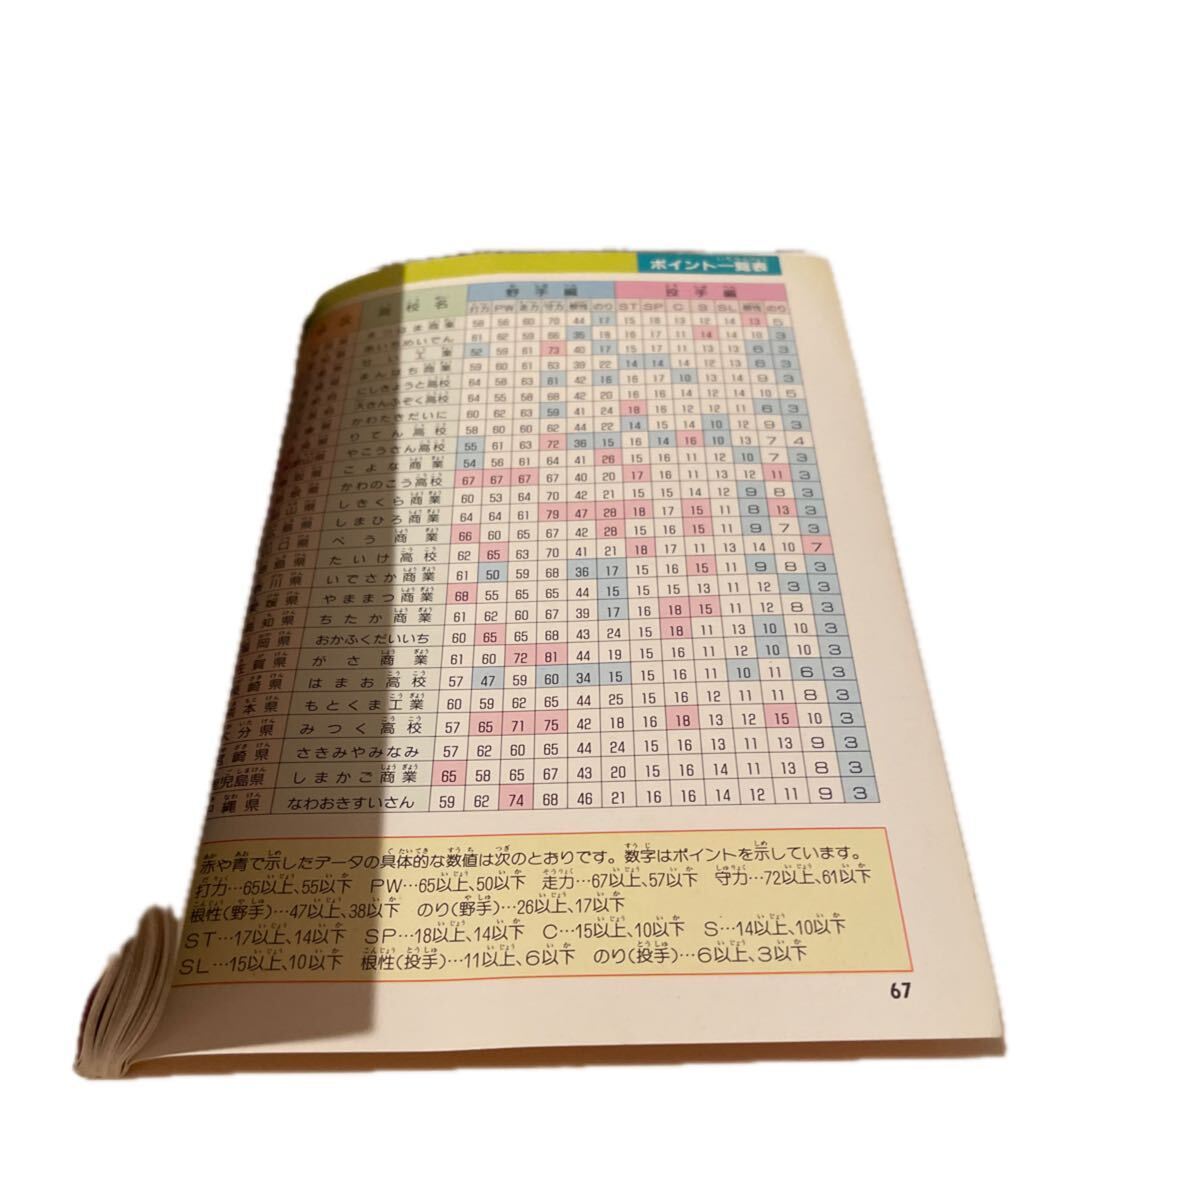 ポイント一覧表
高校名 野手編 投手編
打力 PW 走力 守力 根性 のり ST SP C S SL 根性 のり
商業 58 56 60 70 44 17 15 18 13 12 14 13 5
めいでん 61 62 59 66 35 18 16 17 11 14 14 10 3
工業 52 59 61 73 40 17 15 17 11 13 13 6 3
まんはち商業 59 60 61 63 39 22 14 14 13 13 14 6 3
にしきょうと高校 64 58 63 61 42 16 16 17 10 13 14 9 3
大きんふぞく高校 64 55 58 68 42 20 16 16 14 12 14 10 5
かわたきだいに 60 62 63 59 41 24 18 16 12 12 11 6 3
りてん高校 58 60 60 62 44 22 14 15 14 10 12 9 3
やこうさん高校 55 61 63 72 36 15 16 14 16 10 13 7 4
こよな商業 54 56 61 64 41 26 15 16 11 12 10 7 3
かわのこう高校 67 67 67 67 40 20 17 16 11 14 12 11 3
山県 しきくら商業 60 53 64 70 42 21 15 15 14 12 9 8 3
島県 しまひろ商業 64 64 61 79 47 28 18 17 15 11 8 13 3
口県 べう商業 66 60 65 67 42 28 15 16 15 11 9 7 3
島県 たいけ高校 62 65 63 70 41 21 18 17 11 13 14 10 7
川県 いでさか商業 61 50 59 68 36 17 15 16 15 11 9 8 3
媛県 やままつ商業 68 55 65 65 44 15 15 15 13 11 12 3 3
知県 ちたか商業 61 62 60 67 39 17 16 18 15 11 12 8 3
岡県 おかふくだいいち 60 65 65 68 43 24 15 18 11 13 10 10 3
佐賀県 がさ商業 61 60 72 81 44 19 15 15 11 12 10 10 3
長崎県 はまお高校 57 47 59 60 34 15 15 16 11 10 11 6 3
熊本県 もとくま工業 60 59 62 65 44 25 15 16 12 11 11 8 3
大分県 みつく高校 57 65 71 75 42 18 16 18 13 12 15 10 3
宮崎県 さきみやみなみ 57 62 60 65 44 24 15 16 14 12 13 9 3
鹿児島県 しまかご商業 65 58 65 67 43 20 15 16 14 11 13 8 3
沖縄県 なわおきすいさん 59 62 74 68 46 21 16 16 14 12 11 9 3
赤や青で示したデータの具体的な数値は次のとおりです。数字はポイントを示しています。
打力…65以上、55以下 PW…65以上、50以下 走力…67以上、57以下 守力…72以上、61以下
根性(野手)…47以上、38以下 のり(野手)…26以上、17以下
ST…17以上、14以下 SP…18以上、14以下 C…15以上、10以下 S…14以上、10以下
SL…15以上、10以下 根性(投手)…11以上、6以下 のり(投手)…6以上、3以下
67